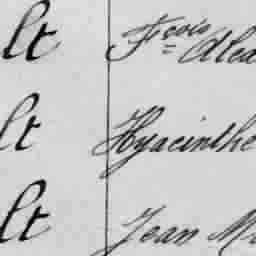 lt Fçois Alex
lt Hyacinthe
lt Jean M